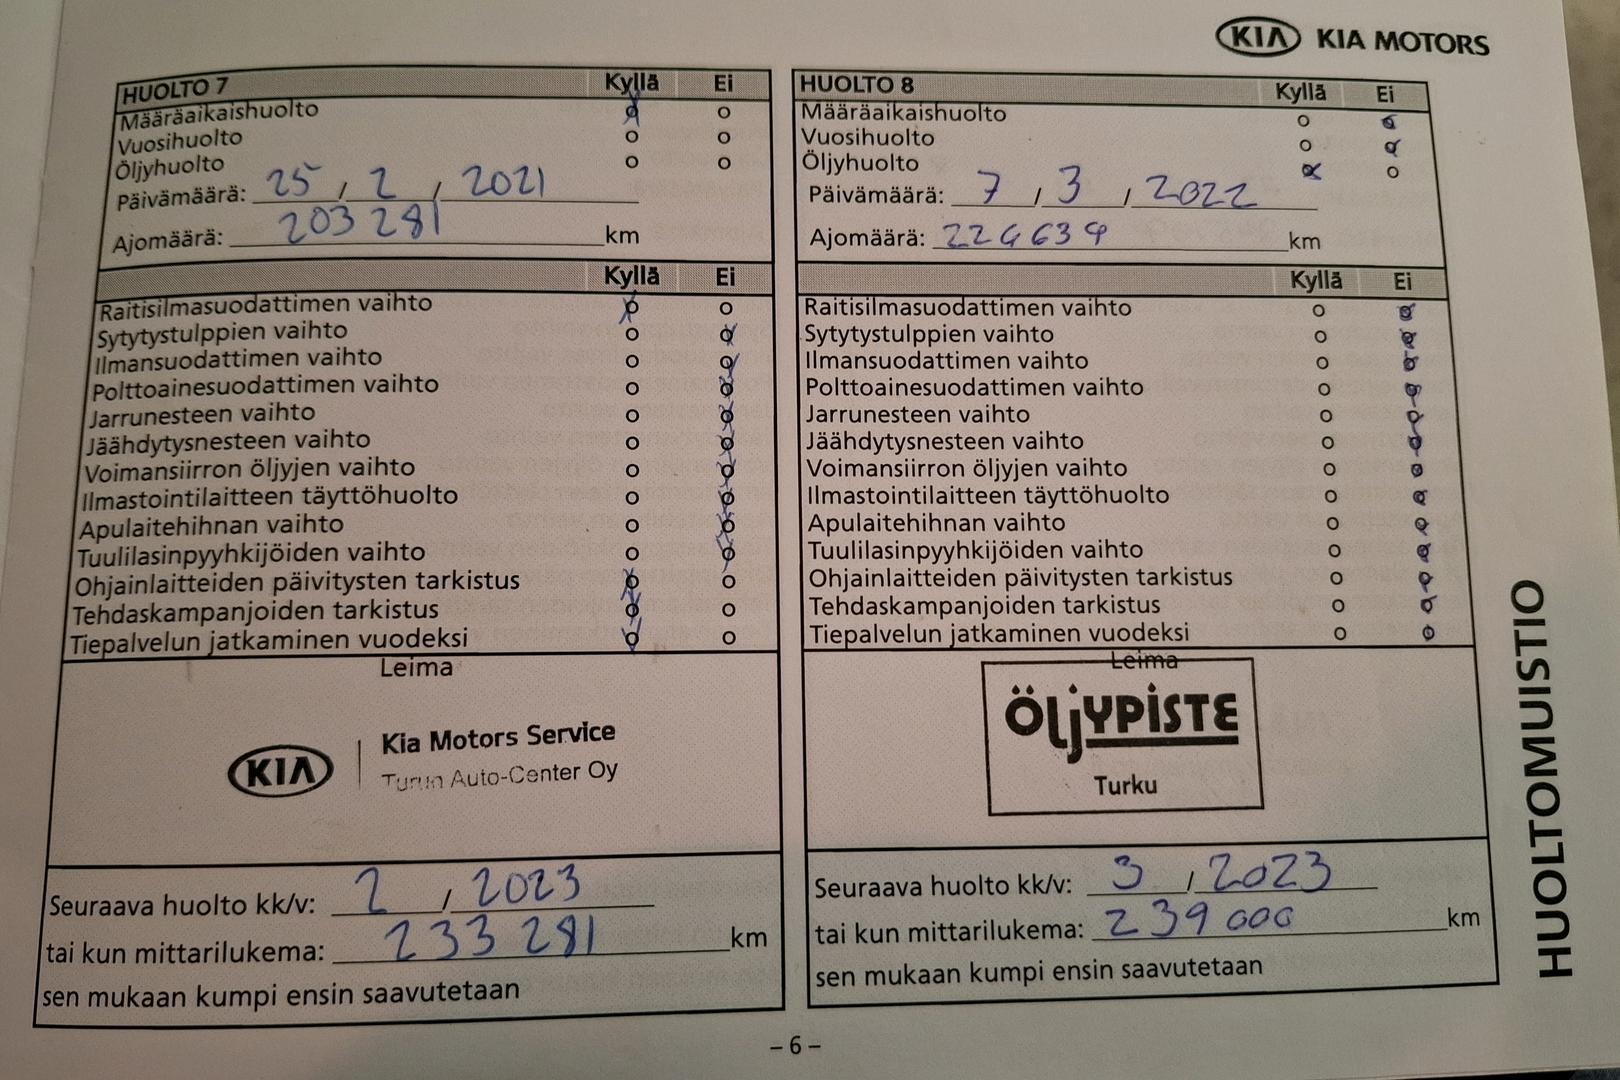 KIA KIA MOTORS
HUOLTO 7 Kyllä Ei
Määräaikaishuolto
Vuosihuolto
Öljyhuolto
Päivämäärä: 25 / 2 / 2021
Ajomäärä: 203 281 km
Kyllä Ei
Raitisilmasuodattimen vaihto
Sytytystulppien vaihto
Ilmansuodattimen vaihto
Polttoainesuodattimen vaihto
Jarrunesteen vaihto
Jäähdytysnesteen vaihto
Voimansiirron öljyjen vaihto
Ilmastointilaitteen täyttöhuolto
Apulaitehihnan vaihto
Tuulilasinpyyhkijöiden vaihto
Ohjainlaitteiden päivitysten tarkistus
Tehdaskampanjoiden tarkistus
Tiepalvelun jatkaminen vuodeksi
Leima
KIA Kia Motors Service
Turun Auto-Center Oy
Seuraava huolto kk/v: 2 / 2023
tai kun mittarilukema: 233 281 km
sen mukaan kumpi ensin saavutetaan
HUOLTO 8 Kyllä Ei
Määräaikaishuolto
Vuosihuolto
Öljyhuolto
Päivämäärä: 7 / 3 / 2022
Ajomäärä: km
Kyllä Ei
Raitisilmasuodattimen vaihto
Sytytystulppien vaihto
Ilmansuodattimen vaihto
Polttoainesuodattimen vaihto
Jarrunesteen vaihto
Jäähdytysnesteen vaihto
Voimansiirron öljyjen vaihto
Ilmastointilaitteen täyttöhuolto
Apulaitehihnan vaihto
Tuulilasinpyyhkijöiden vaihto
Ohjainlaitteiden päivitysten tarkistus
Tehdaskampanjoiden tarkistus
Tiepalvelun jatkaminen vuodeksi
Leima
ÖLjYPiSTE
Turku
Seuraava huolto kk/v: 3 / 2023
tai kun mittarilukema: 239 000 km
sen mukaan kumpi ensin saavutetaan
HUOLTOMUISTIO
– 6 –